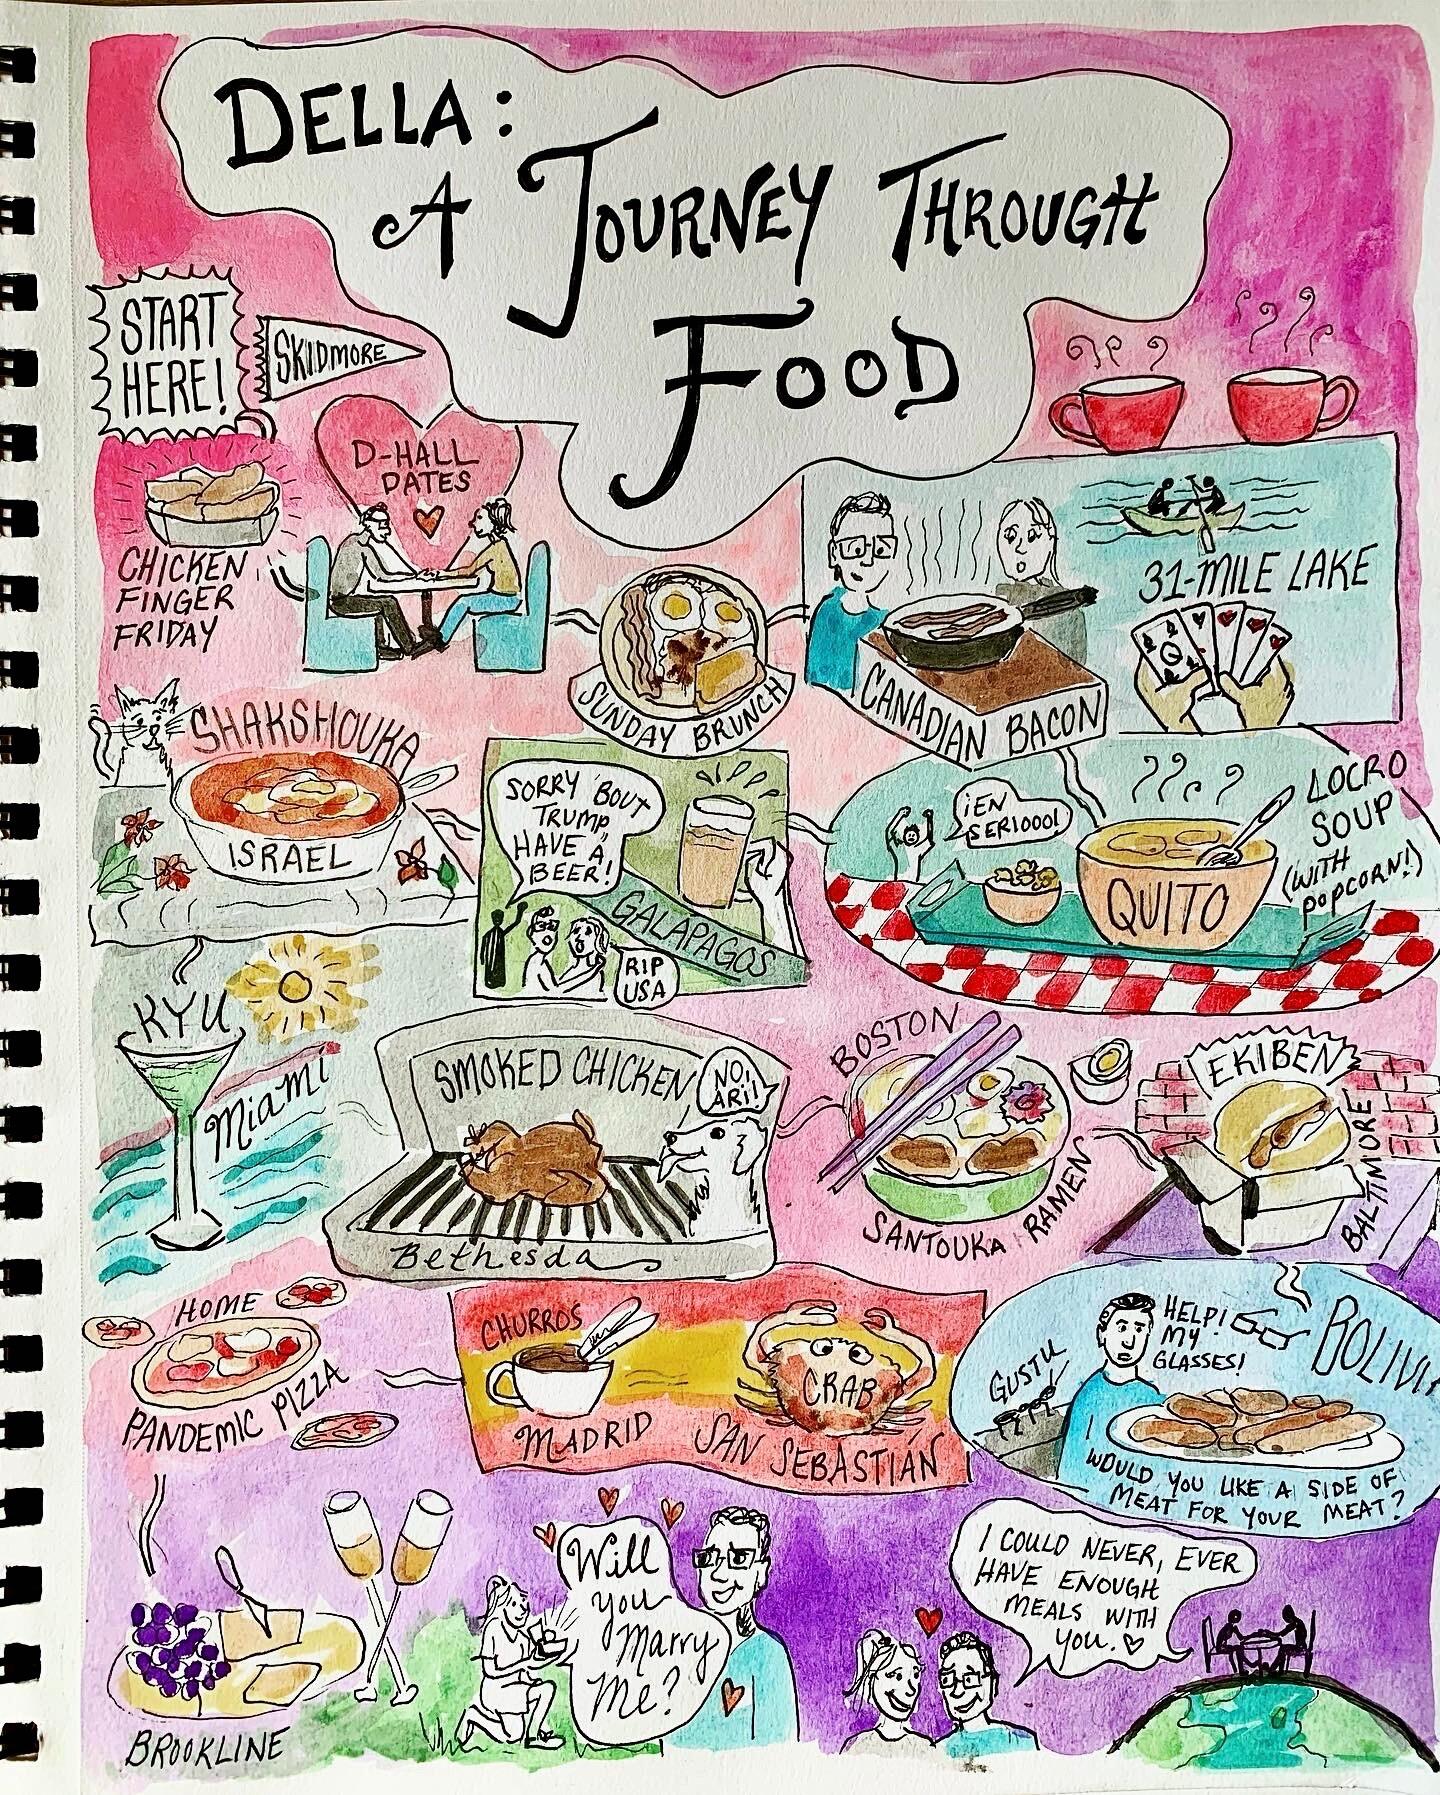 DELLA:
A JOURNEY THROUGH
FOOD
START
HERE!
SKIDMORE
CHICKEN
FINGER
FRIDAY
D-HALL
DATES
SUNDAY BRUNCH
CANADIAN BACON
31-MILE LAKE
SHAKSHOUKA
ISRAEL
SORRY 'BOUT
TRUMP,
HAVE A
BEER!
GALAPAGOS
RIP
USA
¡EN
SERIOOO!
QUITO
LOCRO
SOUP
(WITH
POPCORN!)
KYU
Miami
SMOKED CHICKEN
NO,
ARI!
Bethesda
BOSTON
SANTOUKA RAMEN
EKIBEN
BALTIMORE
HOME
PANDEMIC PIZZA
CHURROS
MADRID
CRAB
SAN SEBASTIÁN
GUSTU
HELP!
MY
GLASSES!
BOLIVI
WOULD YOU LIKE A SIDE OF
MEAT FOR YOUR MEAT?
BROOKLINE
Will
you
Marry
Me?
I COULD NEVER, EVER
HAVE ENOUGH
MEALS WITH
YOU. ♡